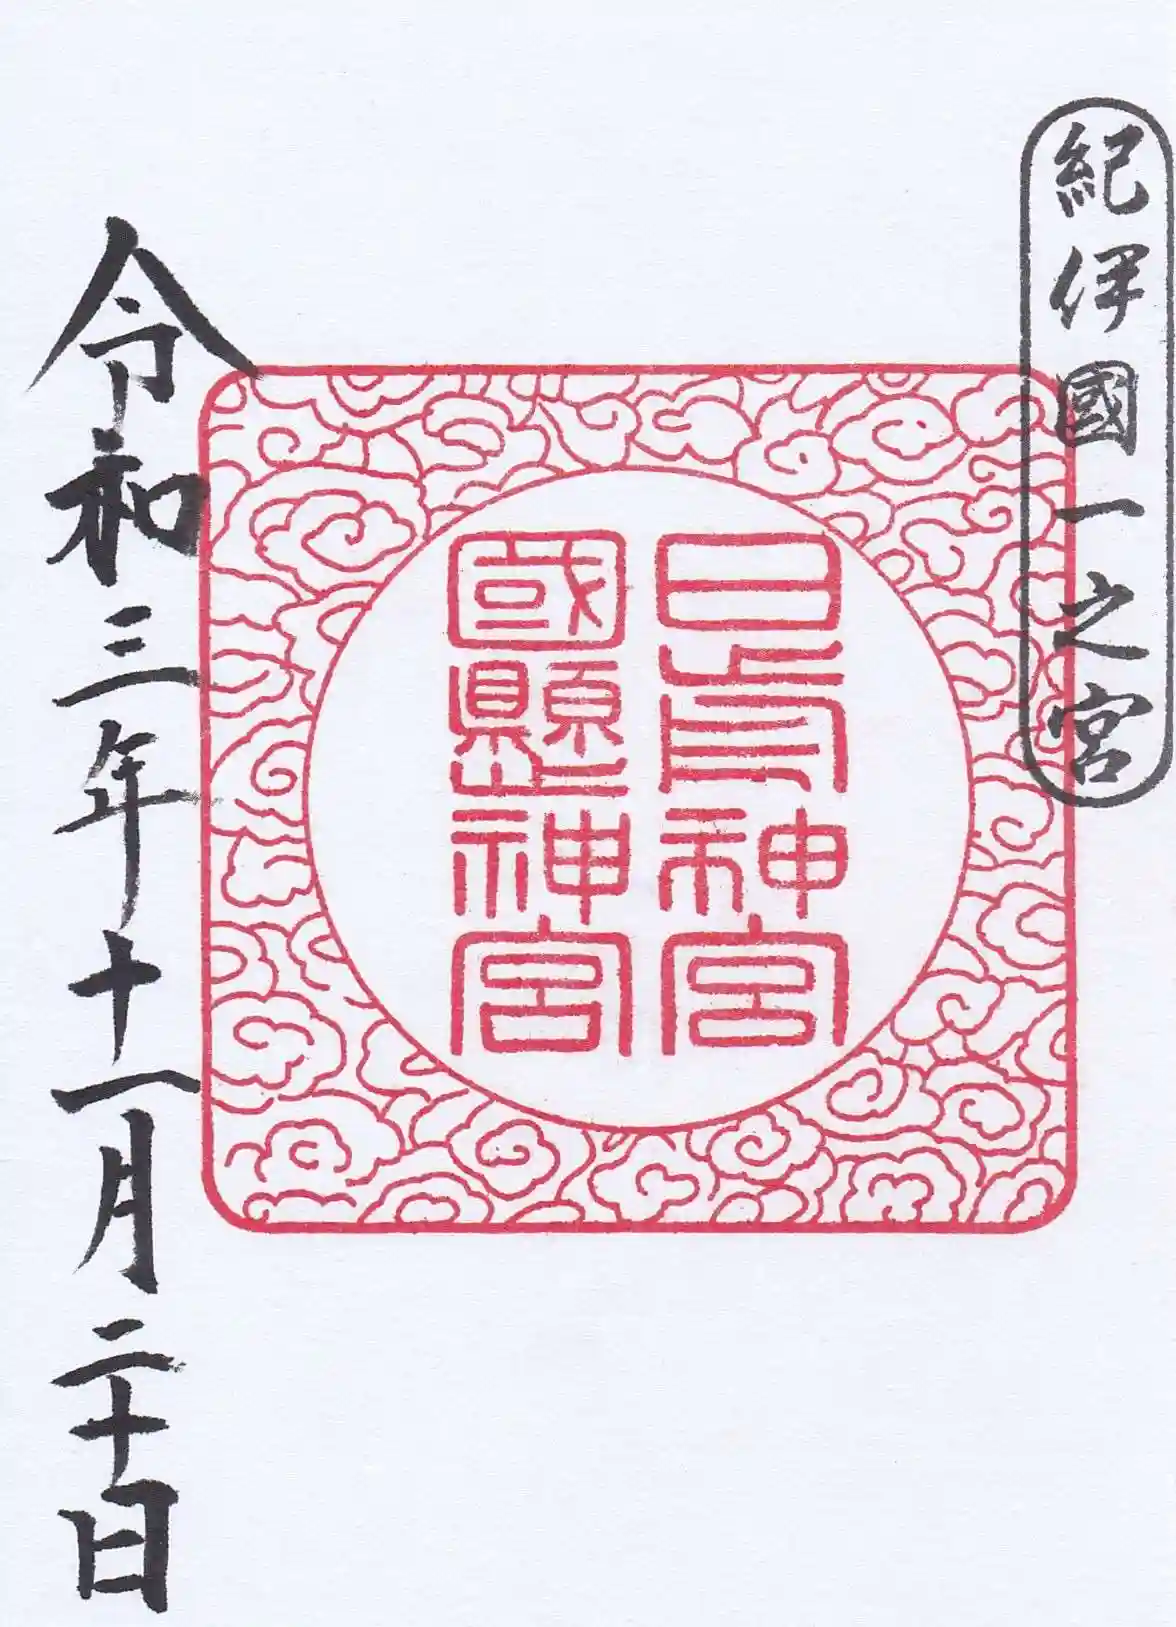 紀伊國一之宮
日前神宮
國懸神宮
令和三年十一月二十日